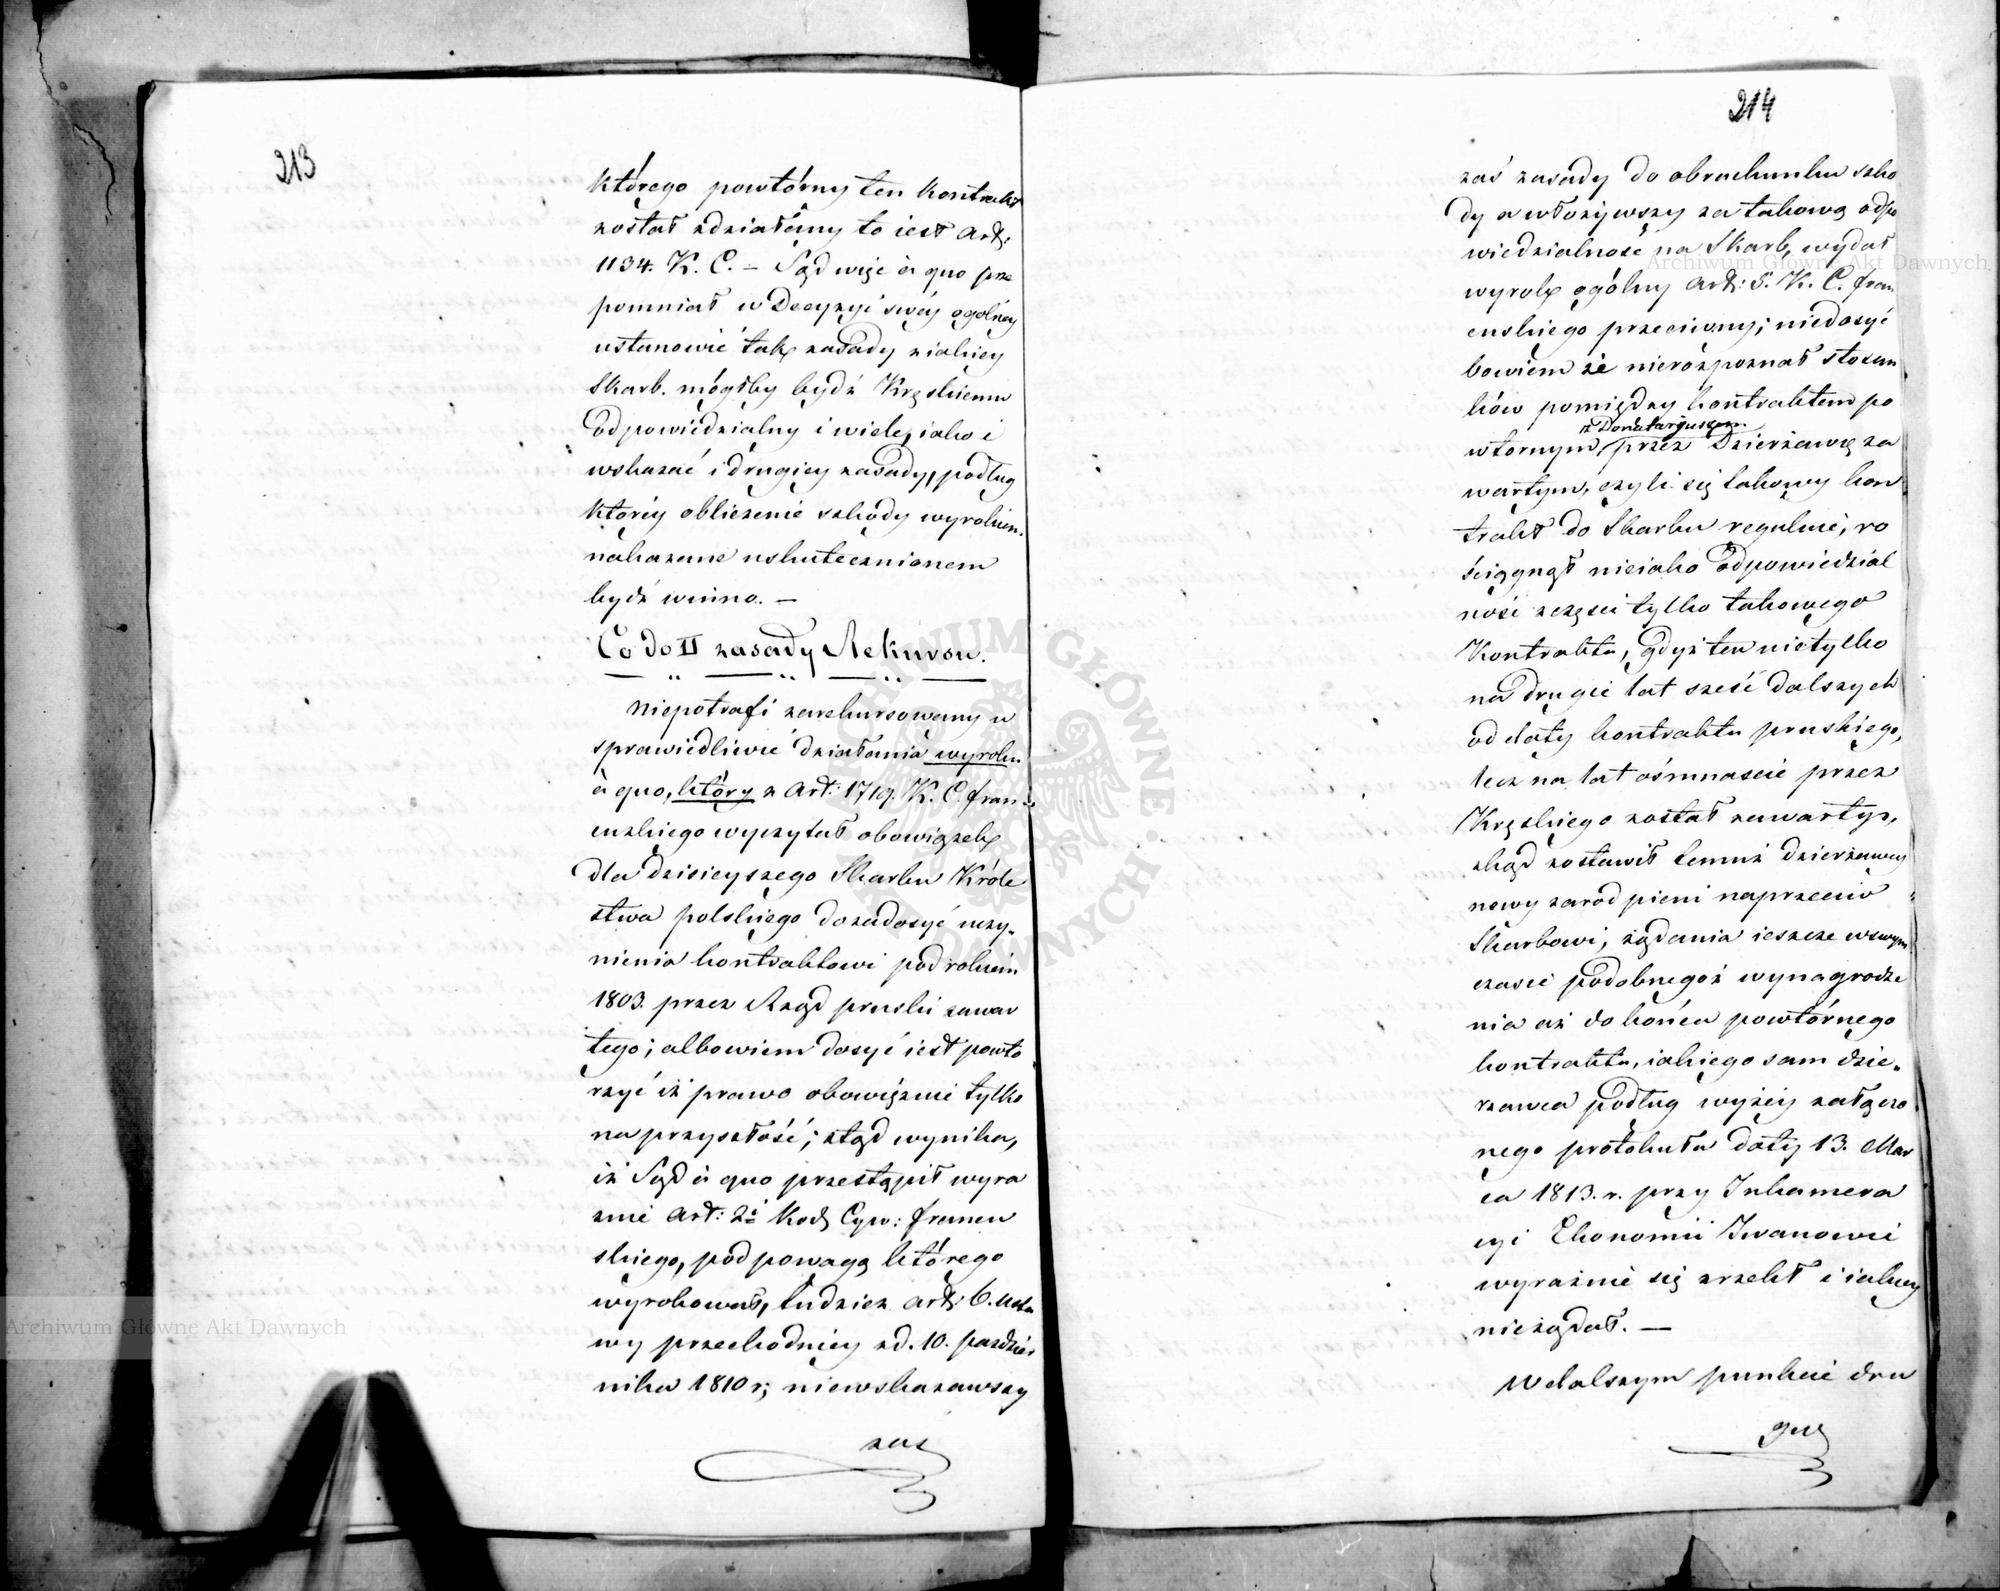 213
którego powtórny ten kontrakt
został zdziałany to iest Art:
1134. K. C. – Sąd więc à quo prze
pomniał w Decyzyi swéy ogólnéy
ustanowić tak zasady z iakiey
Skarb. mógłby bydź Kręskiemu
odpowiedzialny i wiele, iako i
wskazać i drugiey zasady, podług
któréy obliczenie szkody wyrokiem
nakazane uskutecznionem
bydź winno. –
Co do II zasady Rekursu.
Niepotrafi zarekursowany u
sprawiedliwić działania wyroku
à quo, który z Art: 1719. K. C. fran
cuzkiego wyczytał obowiązek
dla dzisieyszego Skarbu Króle
stwa polskiego do zadosyć uczy-
nienia kontraktowi pod rokiem
1803. przez Rząd pruski zawar
tego; albowiem dosyć iest powtó
rzyć iż prawo obowiązuie tylko
na przyszłość; ztąd wynika,
iż Sąd à quo przestąpił wyra
znie Art: 2i Kod. Cyw: francu
skiego, pod powagą którego
wyrokował, tudziez Art: 6. Usta
wy przechodniey z d. 10. pazdzier
nika 1810 r; niewskazawszy
zaś
214
zaś zasady do obrachunku szko
dy a włożywszy za takową odpo
wiedzialność na Skarb, wydał
wyrok ogólny Art: 5. K. C. fran
cuskiego przeciwny; niedosyć
bowiem że nierozpoznał stosun
ków pomiędzy kontraktem po
z Donataryuszem
wtornym przez Dzierżawcę za
wartym, czyli się takowy kon
trakt do Skarbu reguluie, ro
ściągnął nieiako odpowiedzial
ność z części tylko takowego
Kontraktu, gdyż ten nietylko
na drugie lat sześć dalszych
od daty kontraktu pruskiego,
lecz na lat ośmnaście przez
Kręskiego został zawarty,
zkąd zostawił temuż dzierżawcy
nowy zaród pieni naprzeciw
Skarbowi, żądania ieszcze w swym
czasie podobnegoż wynagrodze
nia aż do końca powtórnego
kontraktu, iakiego sam dzie-
rzawca podług wyżéy załączo
nego protokułu daty 13. Mar
ca 1813. r. przy Inkamera
cyi Ekonomii Iwanowic
wyraźnie się zrzekł i iakiey
nieżądał. –
W dalszym punkcie dru
giey
Archiwum Główne Akt Dawnych
Archiwum Główne Akt Dawnych
ARCHIWUM GŁÓWNE AKT DAWNYCH